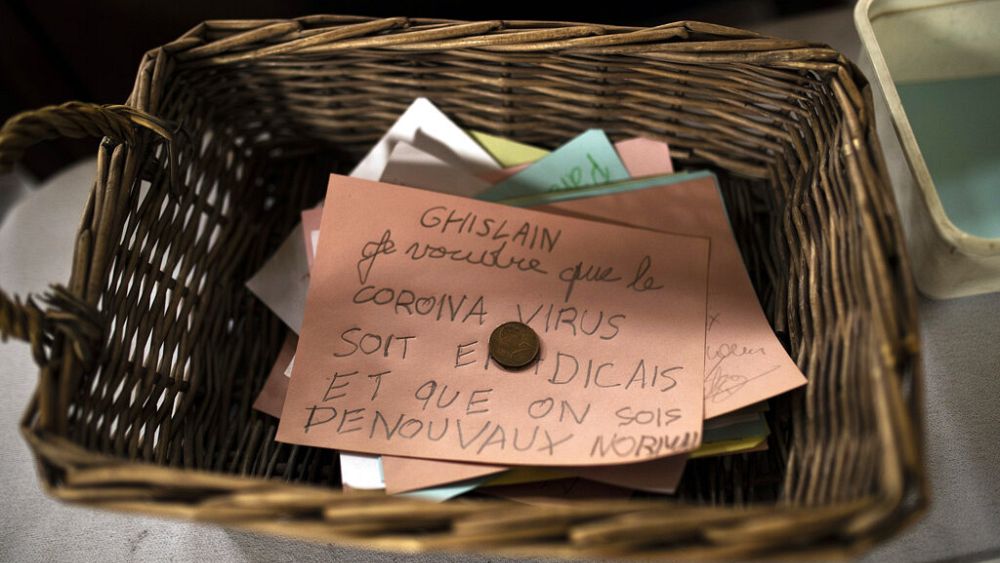 GHISLAIN
Je voudre que le
COROIVA VIRUS
SOIT
ET QUE ON SOIS
DENOUVAUX NORMAL